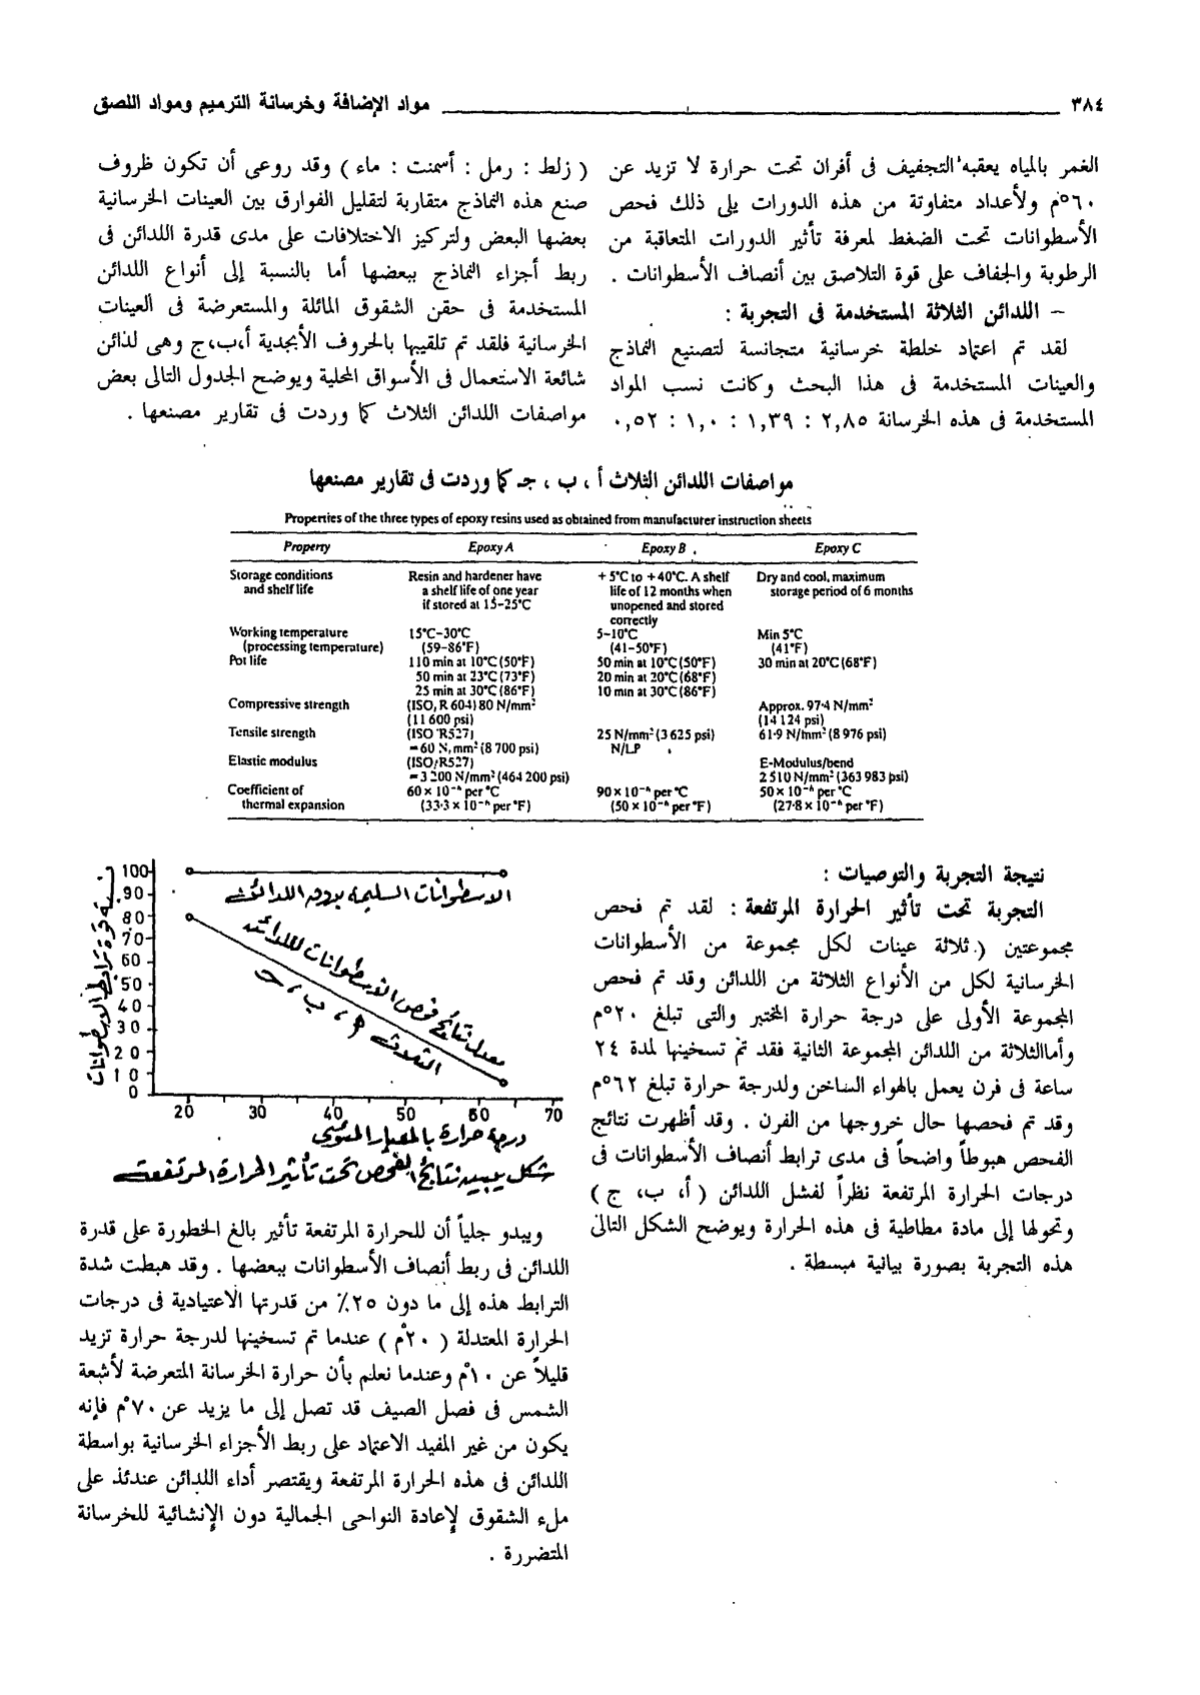 ٣٨٤ مواد الإضافة وخرسانة الترميم ومواد اللصق
الغمر بالمياه يعقبه التجفيف فى أفران تحت حرارة لا تزيد عن
٦٠°م ولأعداد متفاوتة من هذه الدورات يلى ذلك فحص
الأسطوانات تحت الضغط لمعرفة تأثير الدورات المتعاقبة من
الرطوبة والجفاف على قوة التلاصق بين أنصاف الأسطوانات .
– اللدائن الثلاثة المستخدمة فى التجربة :
لقد تم اعتماد خلطة خرسانية متجانسة لتصنيع النماذج
والعينات المستخدمة فى هذا البحث وكانت نسب المواد
المستخدمة فى هذه الخرسانة ٢,٨٥ : ١,٣٩ : ١,٠ : ٠,٥٢
( زلط : رمل : أسمنت : ماء ) وقد روعى أن تكون ظروف
صنع هذه النماذج متقاربة لتقليل الفوارق بين العينات الخرسانية
بعضها البعض ولتركيز الاختلافات على مدى قدرة اللدائن فى
ربط أجزاء النماذج ببعضها أما بالنسبة إلى أنواع اللدائن
المستخدمة فى حقن الشقوق المائلة والمستعرضة فى العينات
الخرسانية فلقد تم تلقيبها بالحروف الأبجدية أ،ب،ج وهى لدائن
شائعة الاستعمال فى الأسواق المحلية ويوضح الجدول التالى بعض
مواصفات اللدائن الثلاث كما وردت فى تقارير مصنعها .
مواصفات اللدائن الثلاث أ ، ب ، جـ كما وردت فى تقارير مصنعها
Properties of the three types of epoxy resins used as obtained from manufacturer instruction sheets
Property Epoxy A Epoxy B Epoxy C
Storage conditions Resin and hardener have + 5°C to +40°C. A shelf Dry and cool, maximum
and shelf life a shelf life of one year life of 12 months when storage period of 6 months
if stored at 15–25°C unopened and stored
correctly
Working temperature 15°C–30°C 5–10°C Min 5°C
(processing temperature) (59–86°F) (41–50°F) (41°F)
Pot life 110 min at 10°C (50°F) 50 min at 10°C (50°F) 30 min at 20°C (68°F)
50 min at 23°C (73°F) 20 min at 20°C (68°F)
25 min at 30°C (86°F) 10 min at 30°C (86°F)
Compressive strength (ISO, R 604) 80 N/mm² Approx. 97·4 N/mm²
(11 600 psi) (14 124 psi)
Tensile strength (ISO R527) 25 N/mm² (3 625 psi) 61·9 N/mm² (8 976 psi)
60 N/mm² (8 700 psi) N/LP
Elastic modulus (ISO/R527) E-Modulus/bend
3 200 N/mm² (464 200 psi) 2 510 N/mm² (363 983 psi)
Coefficient of 60 × 10⁻⁶ per °C 90 × 10⁻⁶ per °C 50 × 10⁻⁶ per °C
thermal expansion (33·3 × 10⁻⁶ per °F) (50 × 10⁻⁶ per °F) (27·8 × 10⁻⁶ per °F)
نتيجة التجربة والتوصيات :
التجربة تحت تأثير الحرارة المرتفعة : لقد تم فحص
مجموعتين ( ثلاثة عينات لكل مجموعة من الأسطوانات
الخرسانية لكل من الأنواع الثلاثة من اللدائن وقد تم فحص
المجموعة الأولى على درجة حرارة المختبر والتى تبلغ ٢٠°م
وأماالثلاثة من اللدائن المجموعة الثانية فقد تم تسخينها لمدة ٢٤
ساعة فى فرن يعمل بالهواء الساخن ولدرجة حرارة تبلغ ٦٢°م
وقد تم فحصها حال خروجها من الفرن . وقد أظهرت نتائج
الفحص هبوطاً واضحاً فى مدى ترابط أنصاف الأسطوانات فى
درجات الحرارة المرتفعة نظراً لفشل اللدائن ( أ، ب، ج )
وتحولها إلى مادة مطاطية فى هذه الحرارة ويوضح الشكل التالى
هذه التجربة بصورة بيانية مبسطة .
نسبة قوة ترابط الاسطوانات
100
90
80
70
60
50
40
30
20
10
0
الاسطوانات السليمة بدون اللدائن
معدل نتائج فحص الاسطوانات للدائن
الثلاث أ ، ب ، جـ
20 30 40 50 60 70
درجة حرارة بالمعيار المئوي
شكل يبين نتائج الفحص تحت تأثير الحرارة المرتفعة
ويبدو جلياً أن للحرارة المرتفعة تأثير بالغ الخطورة على قدرة
اللدائن فى ربط أنصاف الأسطوانات ببعضها . وقد هبطت شدة
الترابط هذه إلى ما دون ٢٥٪ من قدرتها الاعتيادية فى درجات
الحرارة المعتدلة ( ٢٠°م ) عندما تم تسخينها لدرجة حرارة تزيد
قليلاً عن ١٠°م وعندما نعلم بأن حرارة الخرسانة المتعرضة لأشعة
الشمس فى فصل الصيف قد تصل إلى ما يزيد عن ٧٠°م فإنه
يكون من غير المفيد الاعتماد على ربط الأجزاء الخرسانية بواسطة
اللدائن فى هذه الحرارة المرتفعة ويقتصر أداء اللدائن عندئذ على
ملء الشقوق لإعادة النواحى الجمالية دون الإنشائية للخرسانة
المتضررة .